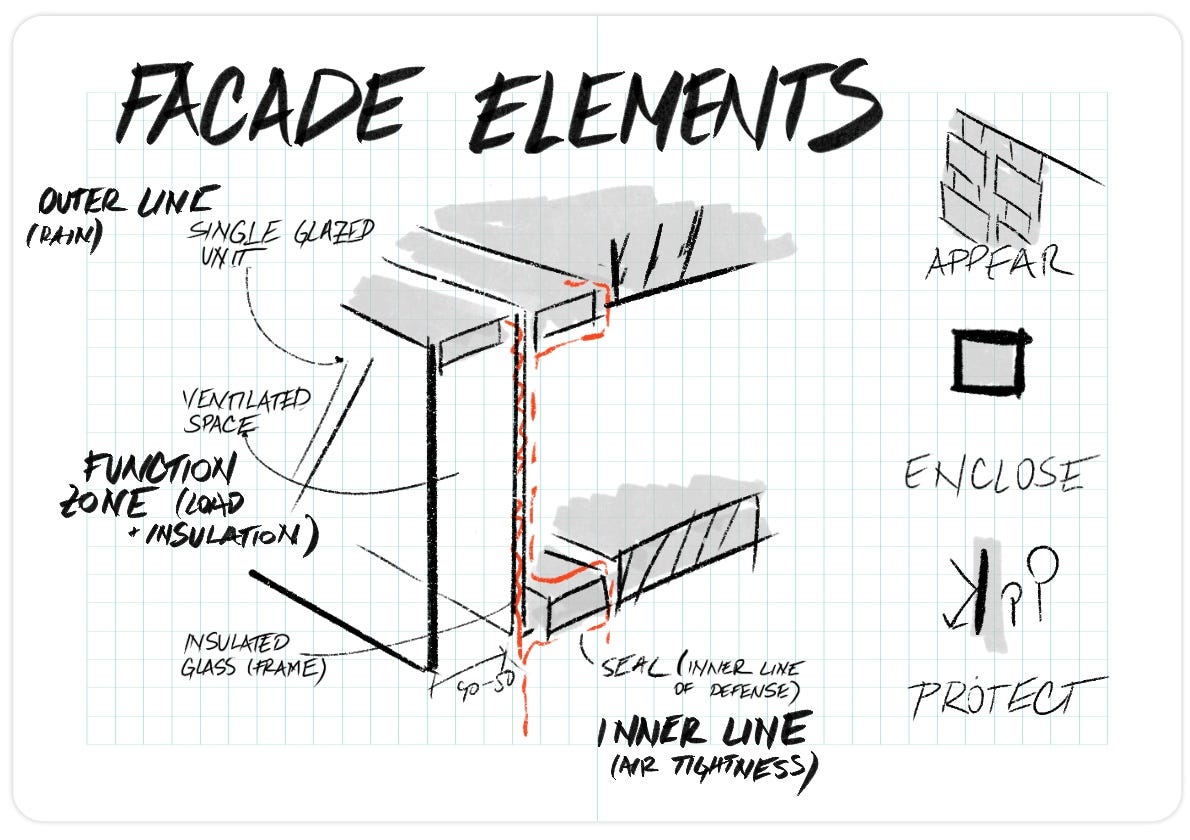 FACADE ELEMENTS
OUTER LINE
(RAIN)
SINGLE GLAZED
UNIT
VENTILATED
SPACE
FUNCTION
ZONE (LOAD
+ INSULATION)
INSULATED
GLASS (FRAME)
90-50
SEAL (INNER LINE
OF DEFENSE)
INNER LINE
(AIR TIGHTNESS)
APPEAR
ENCLOSE
PROTECT